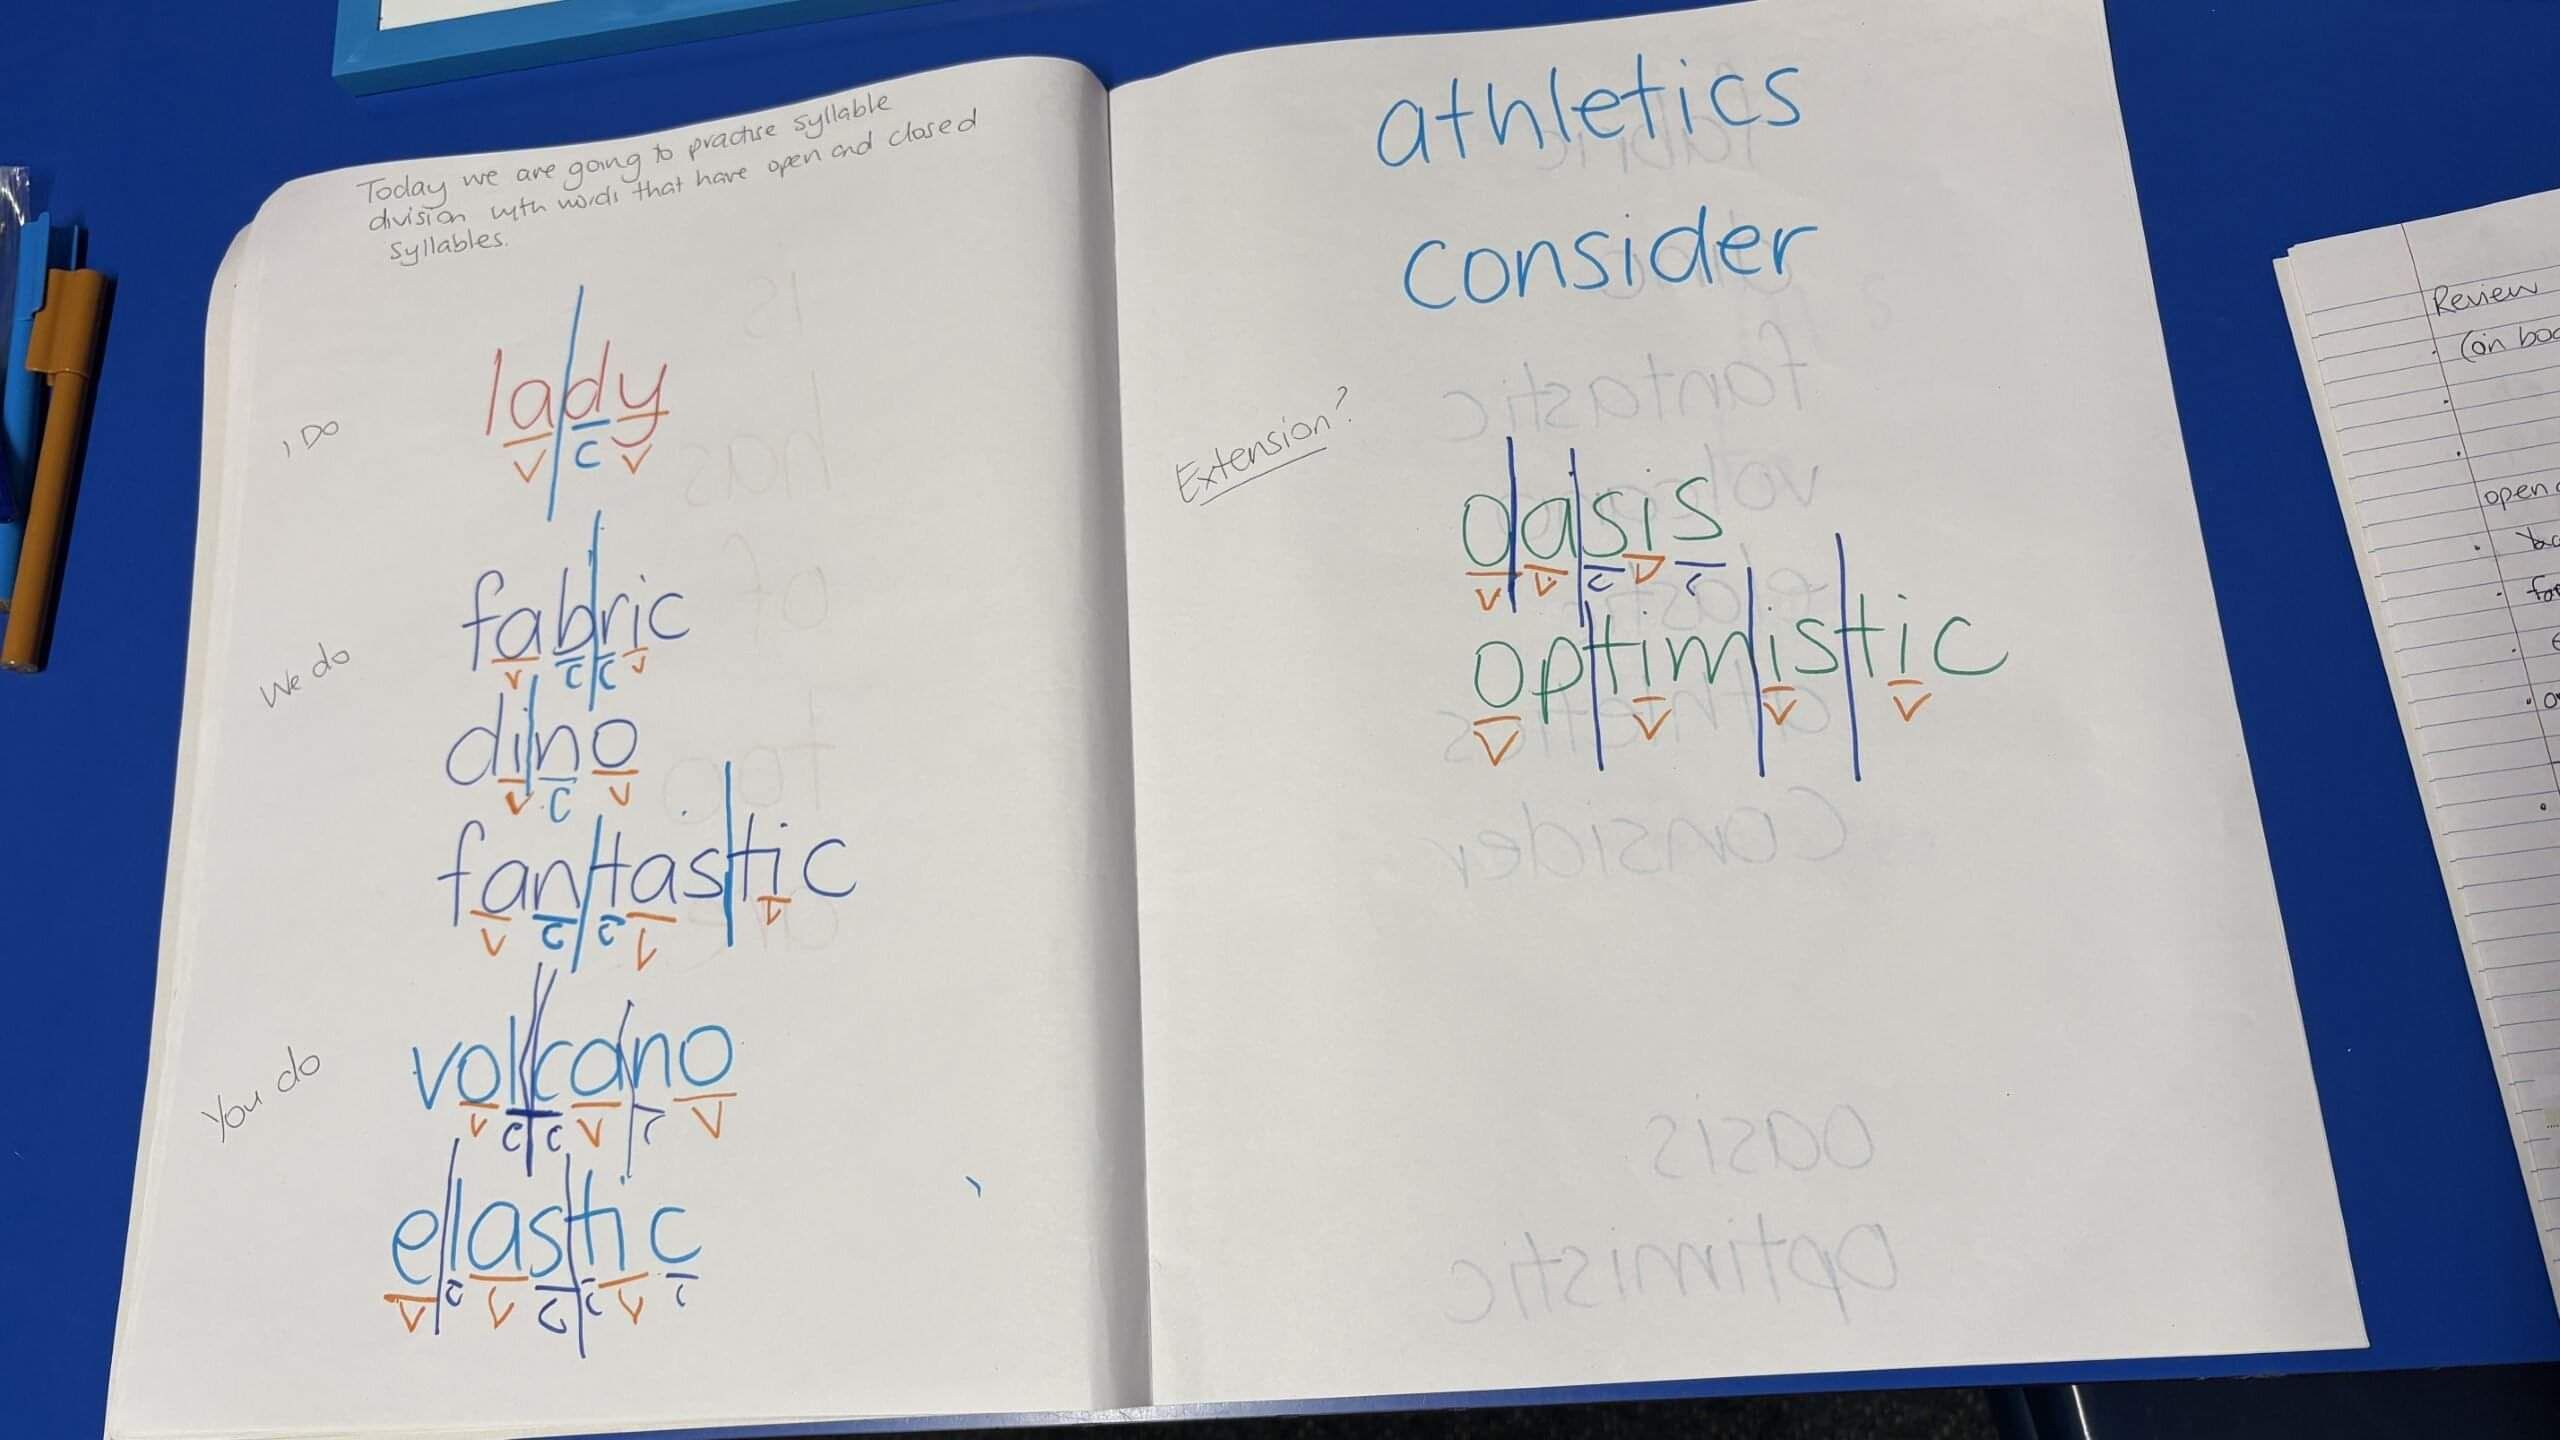 Today we are going to practise syllable
division with words that have open and closed
syllables.
I DO
lady
V C V
We do
fabric
V C C V
dino
V C V
fantastic
V C C V V
You do
volcano
V C C V C V
elastic
V C V C C V C
athletics
consider
Extension?
oasis
V V C V C
optimistic
V V V V
Review
open